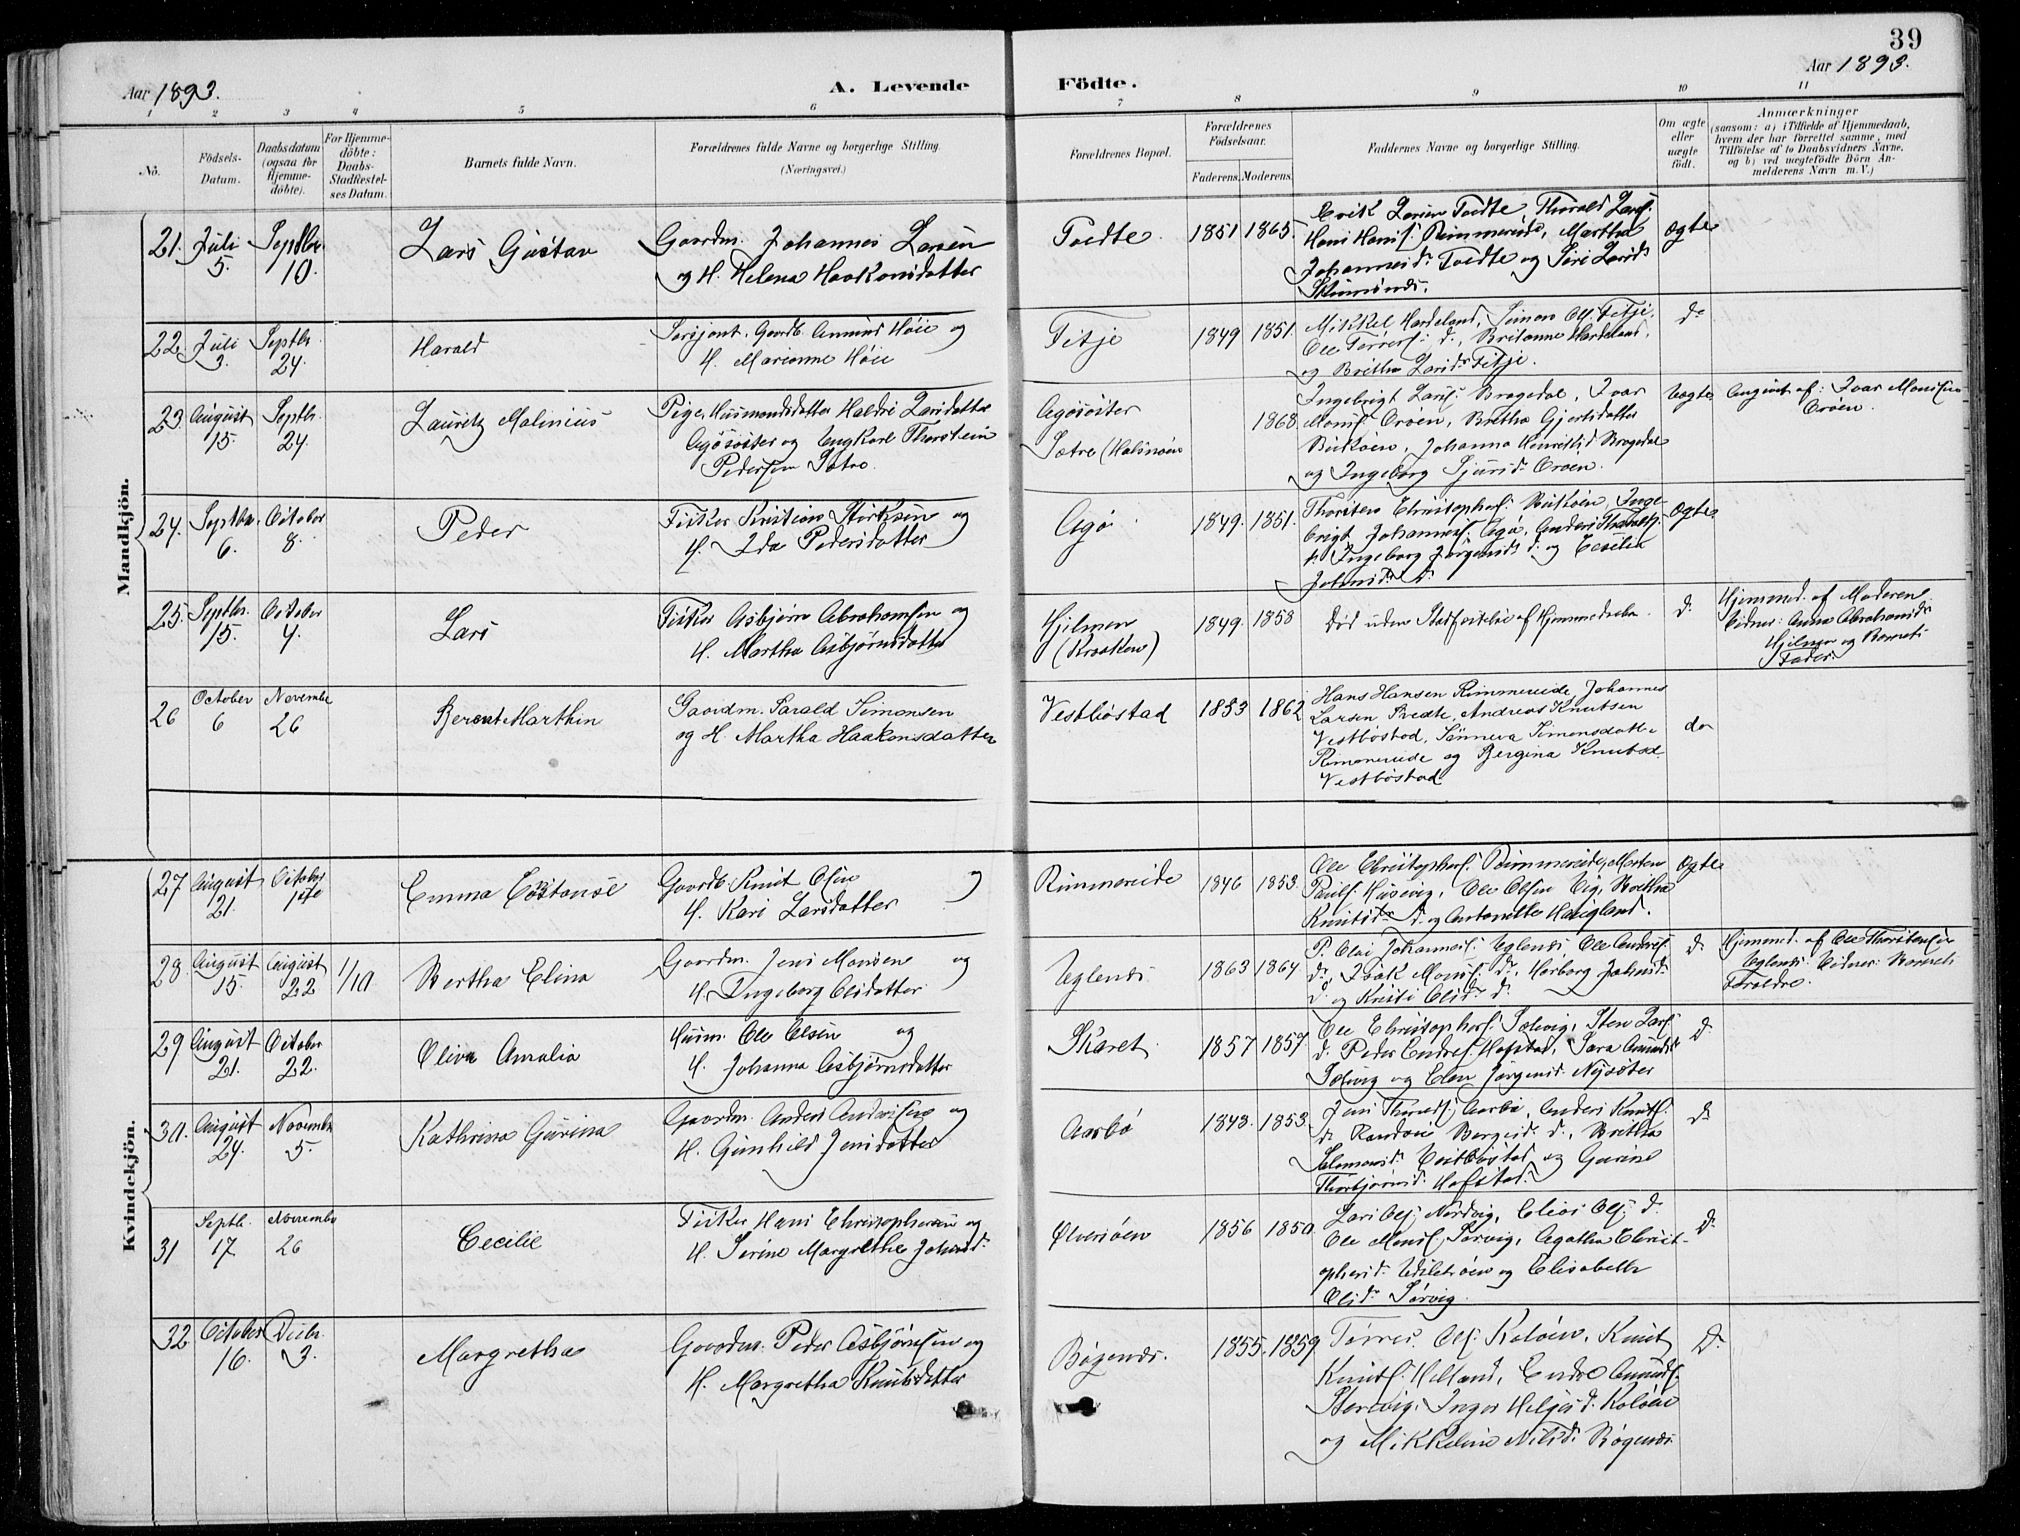 39
Aar 1893.
A. Levende
Födte.
Aar 1893.
1 2 3 4 5 6 7 8 9 10 11
No.
Födsels-
Datum.
Daabsdatum
(ogsaa for
Hjemme-
döbte).
For Hjemme-
döbte:
Daabs-
Stadfæstel-
ses Datum.
Barnets fulde Navn.
Forældrenes fulde Navne og borgerlige Stilling.
(Næringsvei.)
Forældrenes Bopæl.
Forældrenes
Födselsaar.
Faderens. Moderens.
Faddernes Navne og borgerlige Stilling.
Om ægte
eller
uægte
födt.
Anmærkninger
(saasom: a) i Tilfælde af Hjemmedaab,
hvem der har forrettet samme, med
Tilföielse af to Daabsvidners Navne,
og b) ved uægtefödte Börn An-
melderens Navn m. V.)
Mandkjön.
21. Juli 5. Septbr. 10.
Lars Gustav
Gaardm. Johannes Larsen
og H. Helena Haakonsdatter
Tvedte 1851 1865.
Erik Larsen Tvedte, Thorald Lars.
Hans Hans. Rimmereide, Martha
Johannesd. Tvedte og Siri Larsd.
ægte
22. Juli 3. Septbr. 24.
Harald
Serjant. Gaardb. Amund Høie og
H. Marianne Høie
Fitje 1849 1851.
Mikkel Hardeland, Simon Ols. Fitje,
Ole d., Britanne Hardeland,
og Britha Larsd. Fitje.
do
23. August 15. Septbr. 24.
Lauritz Malinius
Pige, Husmandsdatter Haldri Larsdatter
Agøsæter og Ungkarl Thorstein
Pedersen Sætre.
Agøsæter
Sætre (Halsnøen
1868.
Ingebrigt Lars. Bragedal, Ivar
Mons. Croen, Britha Gjertsdatter
Buskøen, Johanna Henriksd. Bragedal
og Ingeborg Sjursd. Croen.
Uægte
Angivet af: Ivar Monsen
Croen.
24. Septbr. 6. October 8.
Peder
Fisker Kristian Størksen og
H. Ida Pedersdatter
Agø 1849. 1851.
Thorsten Christophers. Buskøen, Inge-
brigt Johannes. Agø, Anders
Ingeborg Jørgensd. d. og Cecilia
Johnsd. d.
ægte
25. Septbr. 15. October 4.
Lars
Fisker Asbjørn Abrahamsen og
H. Martha Asbjørnsdatter
Hjelmen
(Kraakøen)
1849. 1858
Død uden Stadfæstelse af Hjemmedaaben
d.
Hjemmed. af Moderen
Vidner: Anna Abrahamsd.
Hjelmen og Barnets
Fader.
26 October 6 November 26
Berent Marthin
Gaardm. Harald Simonsen
og H. Martha Haakonsdatter
Vestbøstad 1853 1862
Hans Hansen Rimmereide, Johannes
Larsen Tvedte, Andreas Knutsen
Vestbøstad, Sünneva Simonsdatter
Rimmereide og Bergina Knutsd.
Vestbøstad
do
Kvindekjön.
27 August 21. October 1ste
Emma Costanse
Gaardb. Knut Olsen og
H. Kari Larsdatter
Rimmereide 1846 1853.
Ole Christophers. Rimmereide, Morten
Pauls. Husevig, Ole Olsen Vig, Britha
Knutsdr. d. og Antonette Haugland.
ægte
28 August 15. August 22 1/10
Bertha Elina
Gaardm. Jens Monsen og
H. Ingeborg Olsdatter
Uglenes 1863 1864.
P. Olai Johannes. Uglenes Ole Anders.
d., Isak Mons. d., Herborg Johnsd.
d. og Kristi Olsd. d.
d.
Hjemmed. af Ole Thorstensen
Uglenes. Vidner: Barnets
Forældre.
29 August 21. October 22.
Oliva Amalia
Husm. Ole Olsen og
H. Johanna Asbjørnsdatter
Skaret 1857 1857.
Ole Christophers. Solvig, Sten Lars.
d. Peder Endres. Hofstad, Sara Amundsd.
Solvig og Elen Jørgensd. Nysæter
d.
30. August 24. November 5.
Kathrina Gurina
Gaardm. Anders Andersen og
H. Gunhild Jensdatter
Aarbø 1848. 1853.
Jens Aarbø, Anders Knuts.
d. d., Britha
Salomonsd. Vestbøstad og Gurine
Thorbjørnsd. Hofstad.
d.
31 Septb. 17. November 26
Cecilie
Fisker Hans Christophersen og
H. Serine Margrethe Johnsd.
Olversøen 1856 1850.
Lars Ols. Nordvig, Elias Ols. d.
Ole Mons. Sørvig, Agatha Christ-
ophersd. og Elisabeth
Olsdr. Sørvig.
d.
32 October 16. Decbr. 3.
Margretha
Gaardm. Peder Asbjørnsen og
H. Margretha Knutsdatter
Bøgenes. 1855. 1859
Torres Ols. Koløen, Knut
Knuts. Helland, Endre Amunds.
Storvig, Inger Helgesd. Koløen
og Mikkeline Nilsd. Bøgenes.
d.